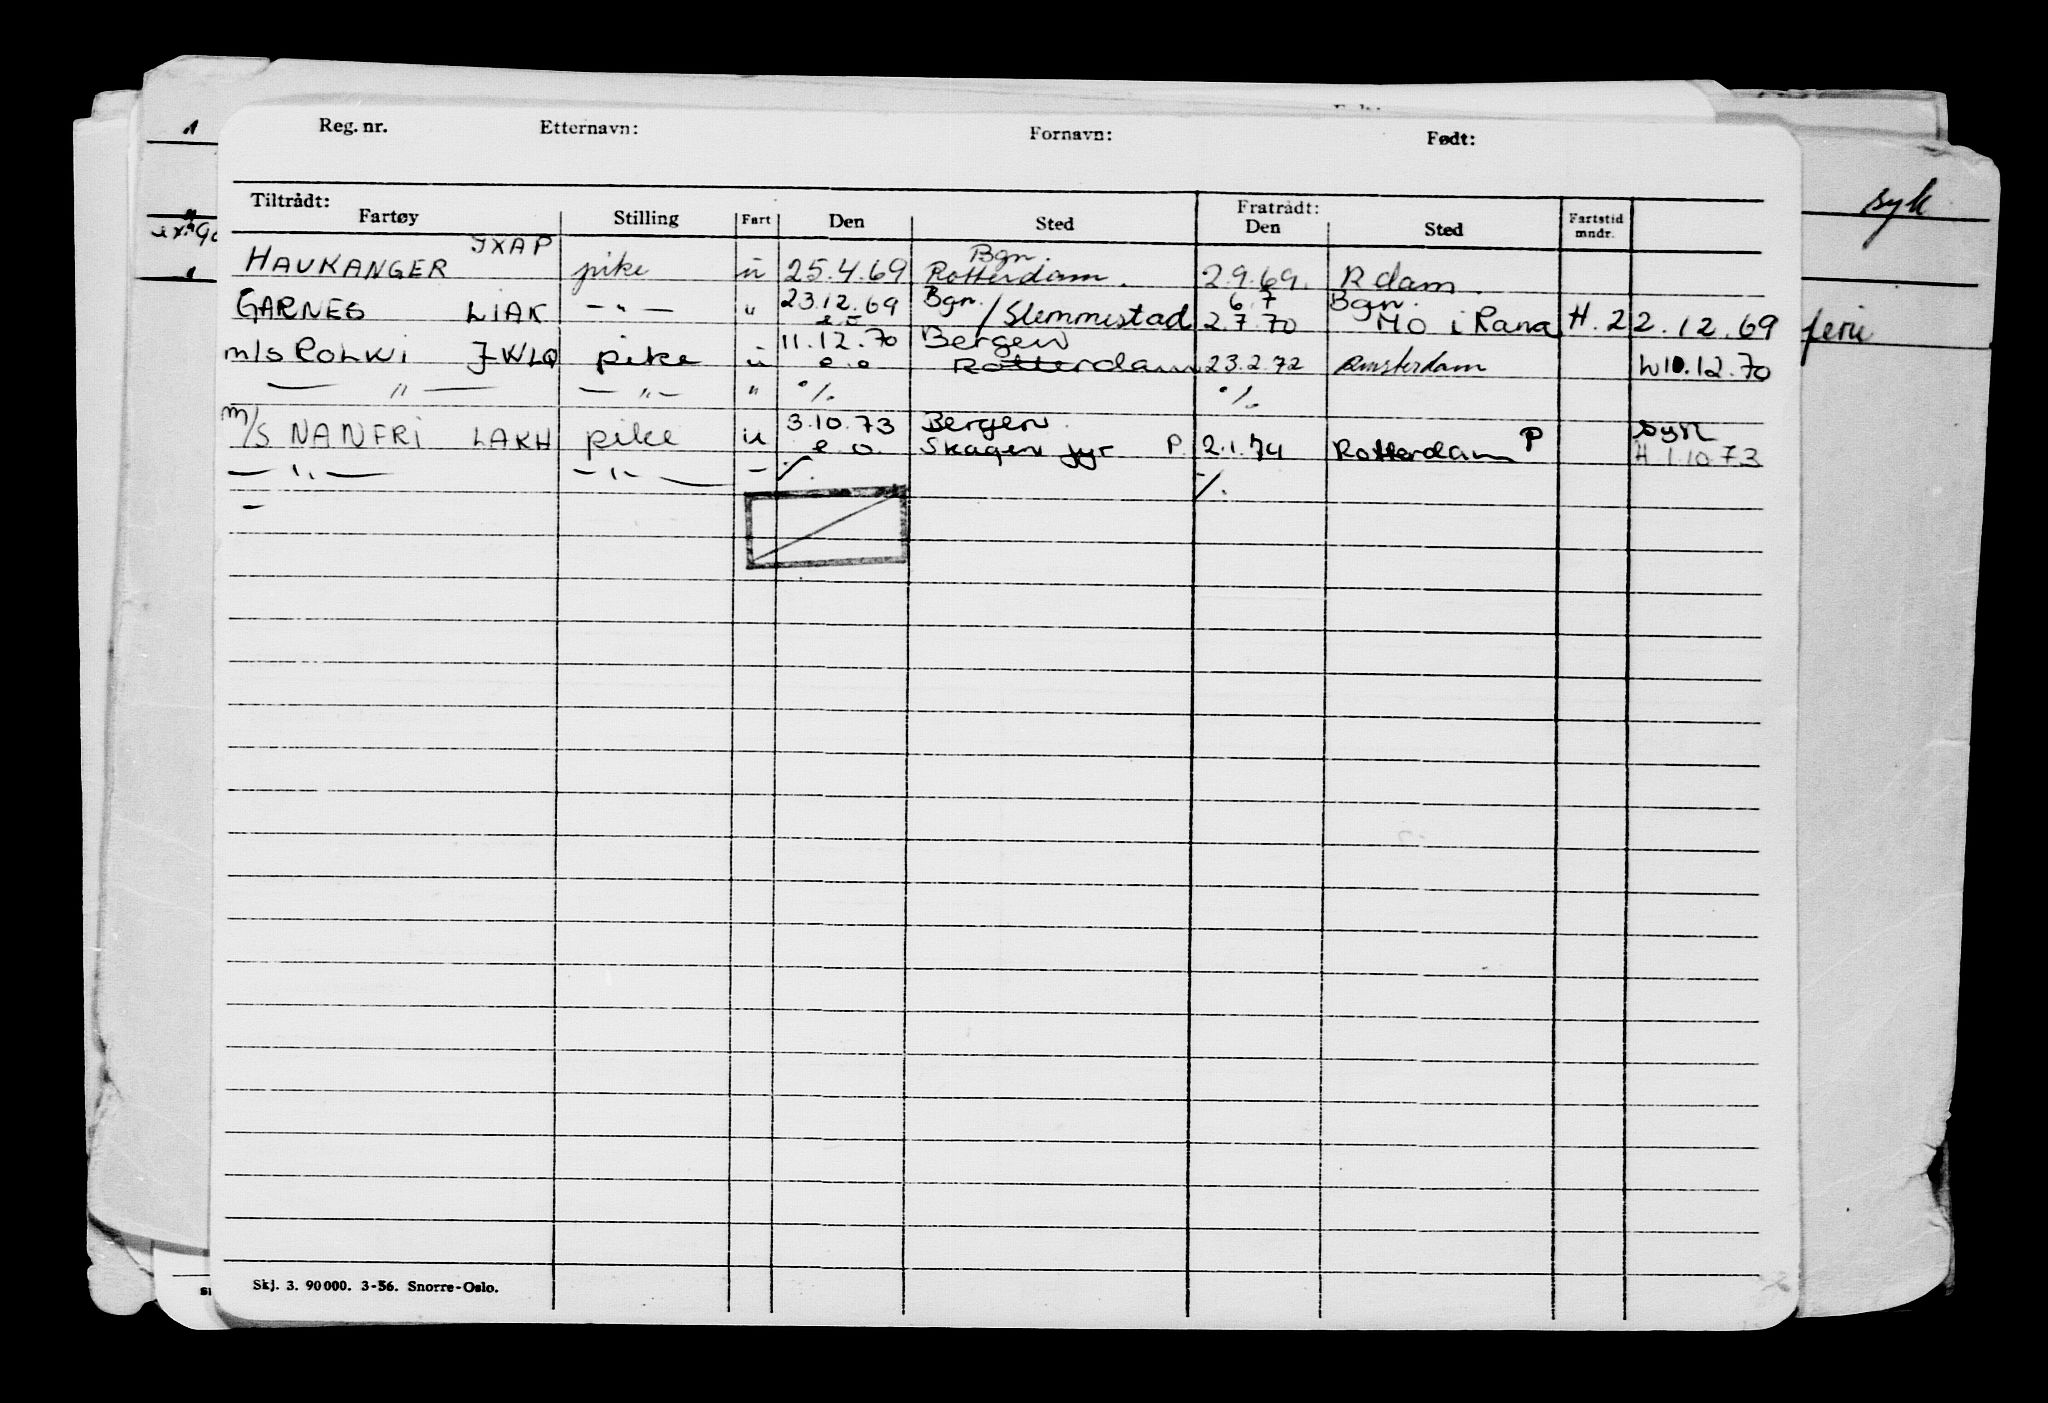 Reg. nr. Etternavn: Fornavn: Født:
Tiltrådt: Fratrådt:
Fartøy Stilling Fart Den Sted Den Sted Fartstid mndr.
syk
JXAP Bgn.
HAUKANGER pike u 25.4.69 Rotterdam. 2.9.69. Rdam.
23.12.69 Bgn. 6.7 Bgn.
GARNES LIAK -"- " / Slemmestad 2.7.70 MO i Rana H. 22.12.69 ferie
11.12.70 Bergen
m/s ROLWI JWLQ pike u e.o Rotterdam 23.2.72 Amsterdam h10.12.70
— " — — " — " ·/. ·/.
3.10.73 Bergen. syk
m/s NANFRI LAKH pike u e.o. Skagen fyr P. 2.1.74 Rotterdam P H 1.10.73
— " — — " — - ·/. ·/.
-
Skj. 3. 90000. 3-56. Snorre-Oslo.